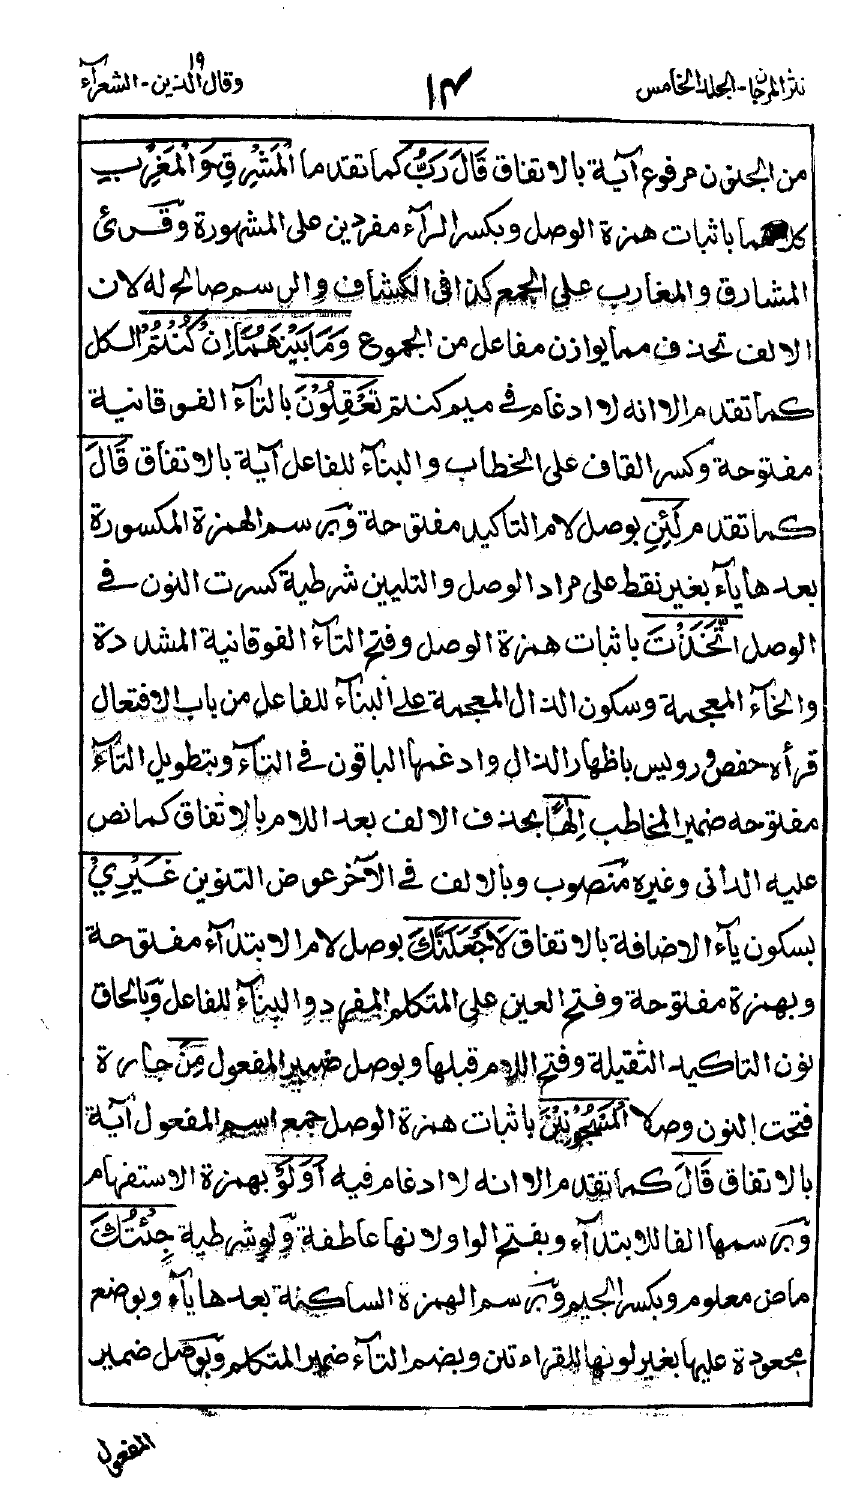 نثر المرجان - الجلد الخامس
١٤
وقال الذين ١٩ - الشعرآء
من الجنون مرفوع آية بالاتفاق قَالَ رَبُّ كما تقدما الْمَشْرِقِ وَالْمَغْرِبِ
كلاهما باثبات همزة الوصل وبكسر الرآء مفردين على المشهورة وقرئ
المشارق والمغارب على الجمع كذا فى الكشاف والرسم صالح له لان
الالف تحذف مما يوازن مفاعل من الجموع وَمَا بَيْنَهُمَا إِنْ كُنْتُمْ الكل
كما تقدم الا انه لا ادغام فى ميم كنتم تَعْقِلُوْنَ بالتآء الفوقانية
مفتوحة وكسر القاف على الخطاب والبنآء للفاعل آية بالاتفاق قَالَ
كما تقدم لَئِنِ بوصل لام التاكيد مفتوحة وبرسم الهمزة المكسورة
بعدها يآء بغير نقط على مراد الوصل والتليين شرطية كسرت النون فى
الوصل اتَّخَذْتَ باثبات همزة الوصل وفتح التآء الفوقانية المشددة
والخآء المعجمة وسكون الذال المعجمة على البنآء للفاعل من باب الافتعال
قرأه حفص و رويس باظهار الذال وادغمها الباقون فى التآء وبتطويل التآء
مفتوحه ضمير المخاطب إِلٰهًا بحذف الالف بعد اللام بالاتفاق كما نص
عليه الدانى وغيره منصوب وبالالف فى الآخر عوض التنوين غَيْرِيْ
بسكون يآء الاضافة بالاتفاق لَاَجْعَلَنَّكَ بوصل لام الابتدآء مفتوحة
وبهمزة مفتوحة وفتح العين على المتكلم المفرد والبنآء للفاعل وبالحاق
نون التاكيد الثقيلة وفتح اللام قبلها وبوصل ضمير المفعول مِنَ جارة
فتحت النون وصلا الْمَسْجُوْنِيْنَ باثبات همزة الوصل جمع اسم المفعول آية
بالاتفاق قَالَ كما تقدم الا انه لا ادغام فيه أَوَلَوْ بهمزة الاستفهام
وبرسمها الفا للابتدآء وبفتح الواو لانها عاطفة ولو شرطية جِئْتُكَ
ماض معلوم وبكسر الجيم وبرسم الهمزة الساكنة بعدها يآء وبوضع
مجعودة عليها بغير لونها للقراءتين وبضم التآء ضمير المتكلم وبوصل ضمير
المفعول